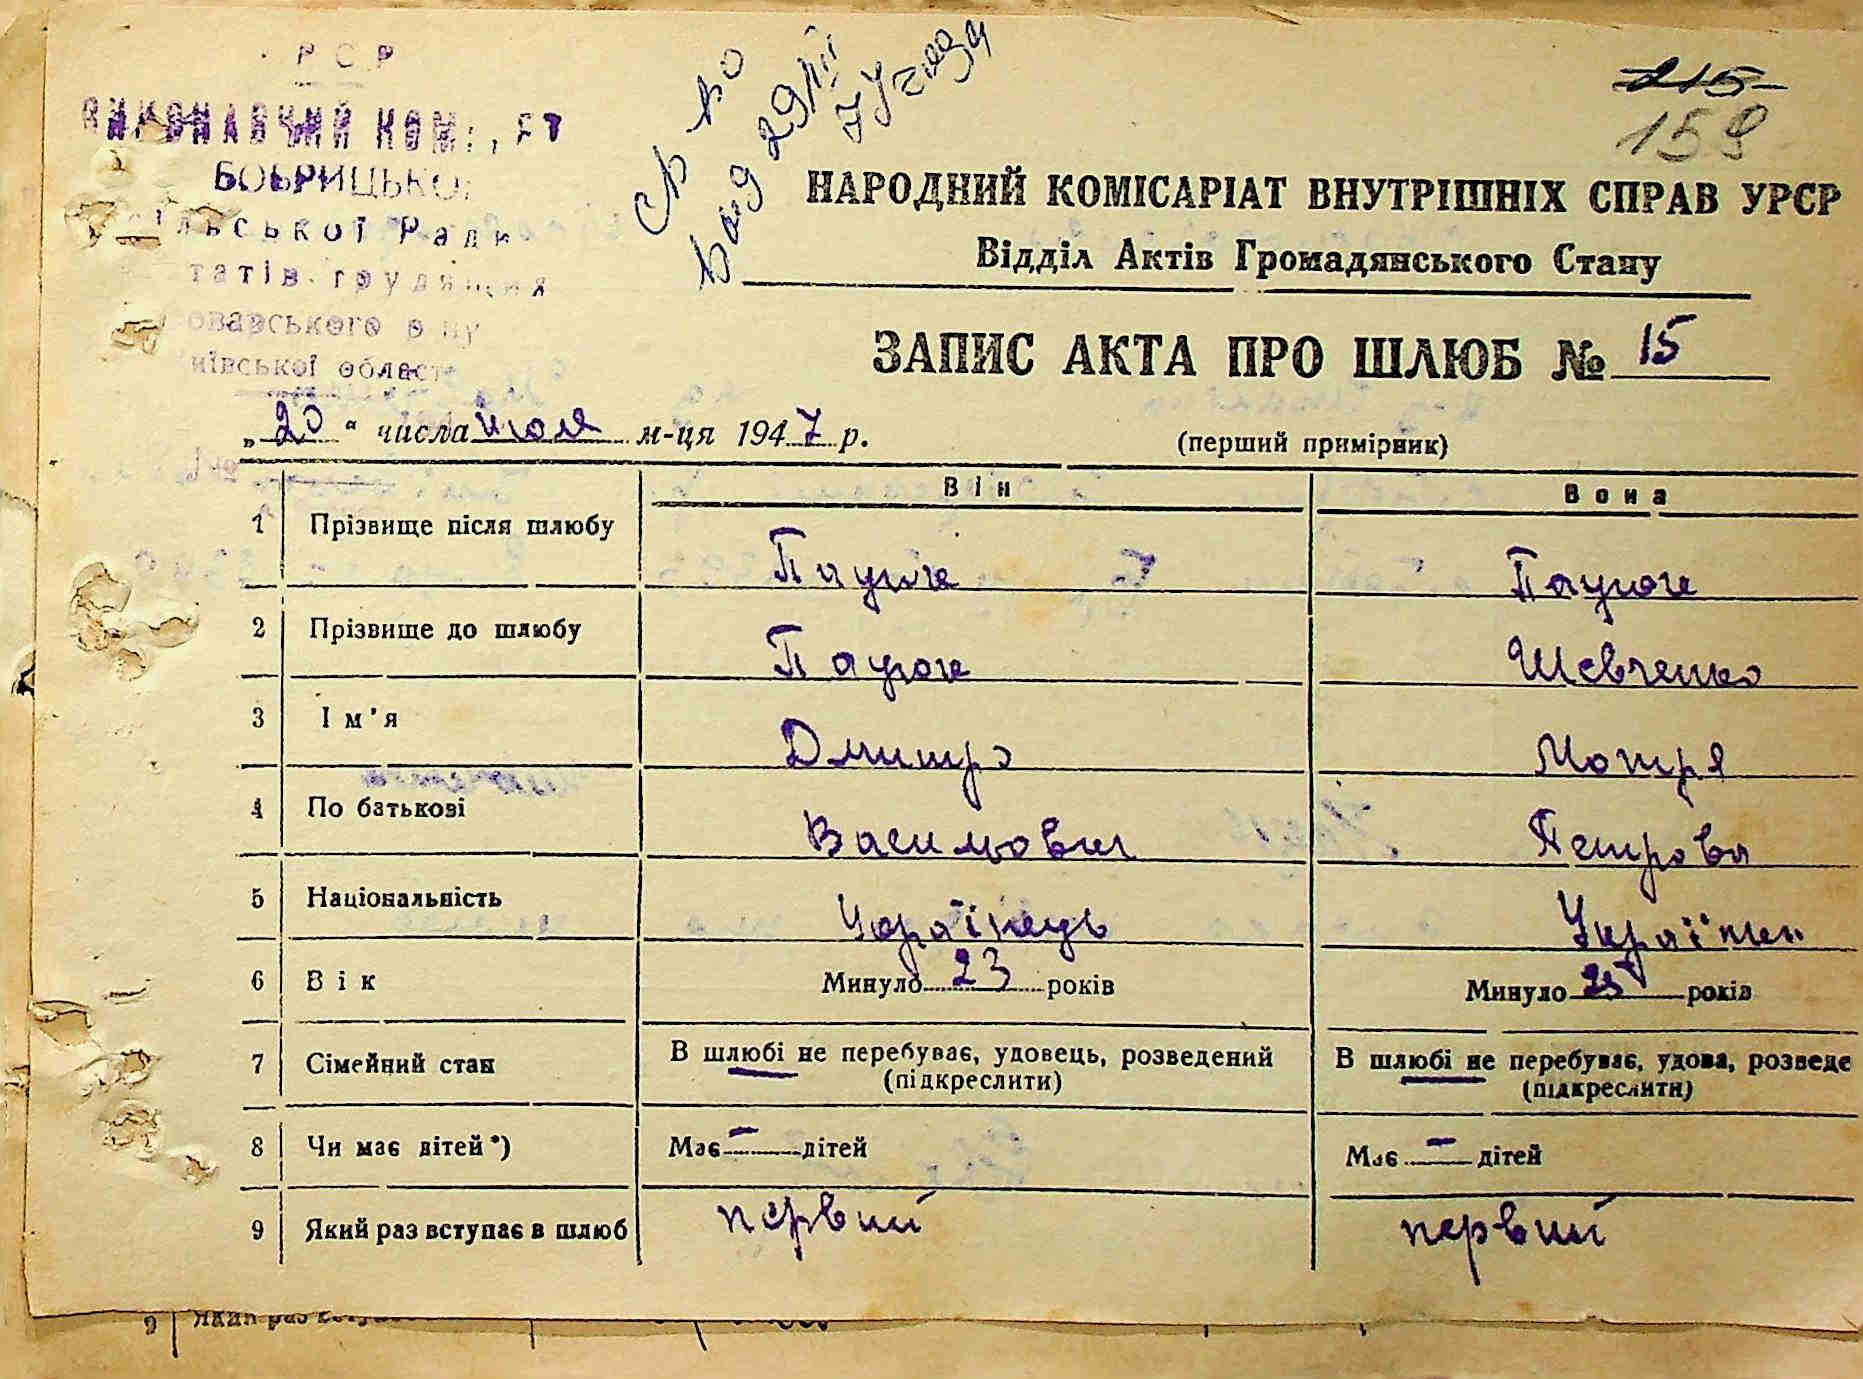 РСР
ВИКОНАВЧИЙ
БОБРИЦЬКОЇ
Ради
області
св-во
29/VII
215
159
НАРОДНИЙ КОМІСАРІАТ ВНУТРІШНІХ СПРАВ УРСР
Відділ Актів Громадянського Стану
ЗАПИС АКТА ПРО ШЛЮБ № 15
„20“ числа июля м-ця 1947 р.
(перший примірник)
Він
Вона
1 Прізвище після шлюбу Пацюк Пацюк
2 Прізвище до шлюбу Пацюк Шевченко
3 Ім'я Дмитро Мотря
4 По батькові Васильович Петровн
5 Національність Українець Українка
6 Вік Минуло 23 років Минуло років
7 Сімейний стан В шлюбі не перебуває, удовець, розведений В шлюбі не перебуває, удова, розведе
(підкреслити) (підкреслити)
8 Чи має дітей*) Має – дітей Має – дітей
9 Який раз вступає в шлюб первий первий
9 Який раз